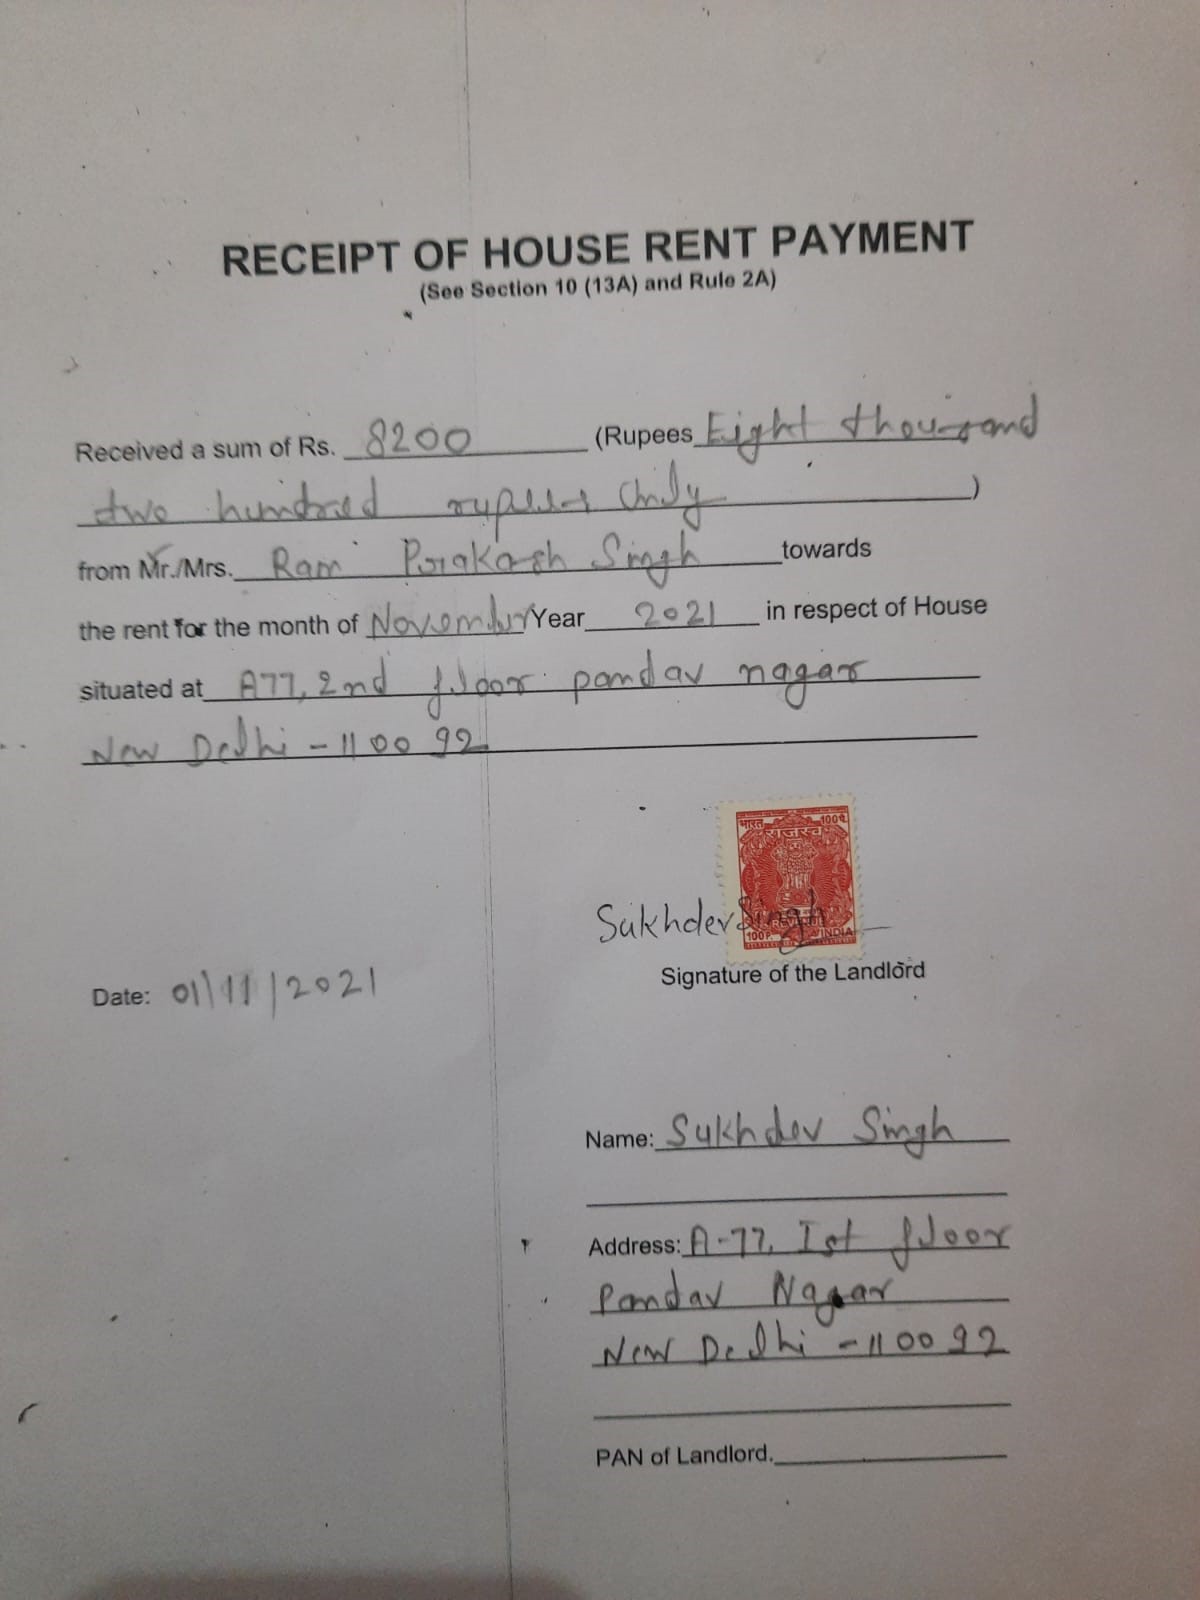 RECEIPT OF HOUSE RENT PAYMENT
(See Section 10 (13A) and Rule 2A)
Received a sum of Rs. 8200 (Rupees Eight thousand
two hundred rupees only)
from Mr./Mrs. Ram Prakash Singh towards
the rent for the month of November Year 2021 in respect of House
situated at A77, 2nd floor pandav nagar
New Delhi - 110092
भारत 100पै.
राजस्व
Sukhdev Singh
100P. INDIA
Signature of the Landlord
Date: 01/11/2021
Name: Sukhdev Singh
Address: A-77, Ist floor
Pandav Nagar
New Delhi - 110092
PAN of Landlord.